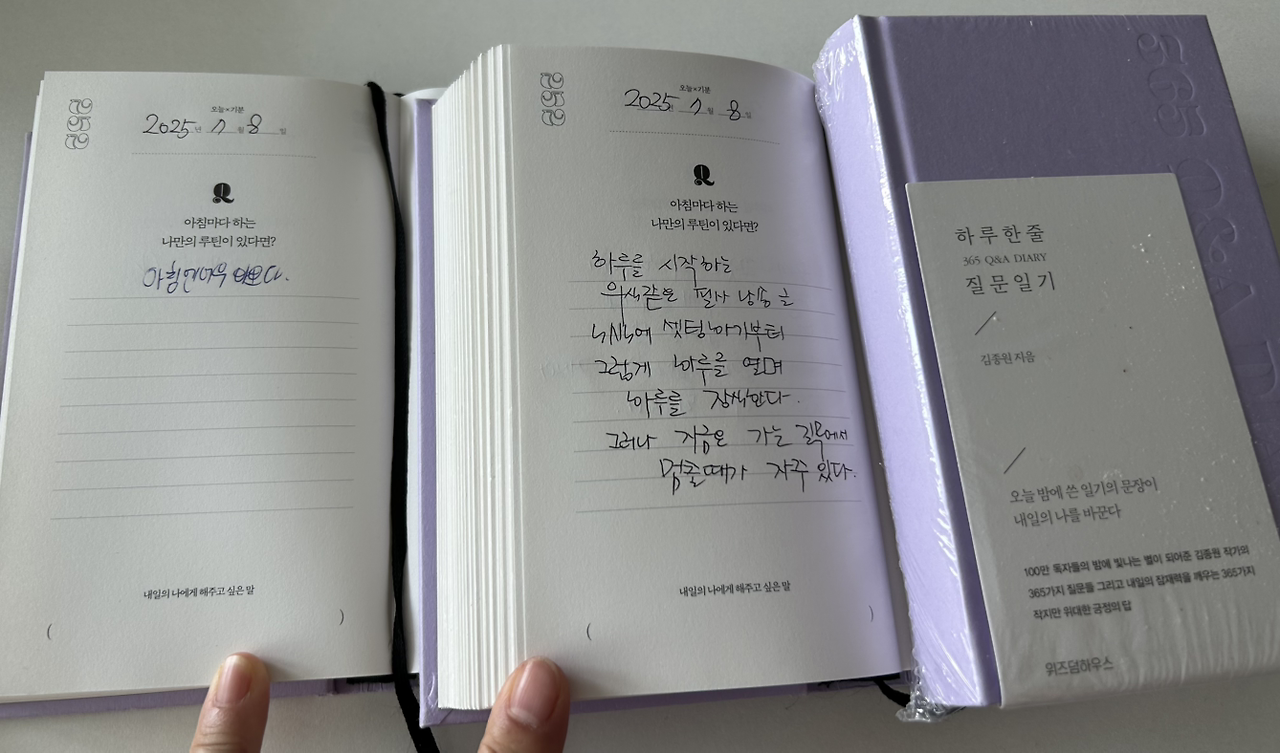 오늘×기분
2025년 7월 8일
Q
아침마다 하는
나만의 루틴이 있다면?
아침엔 너무 바쁘다.
내일의 나에게 해주고 싶은 말
( )
오늘×기분
2025년 7월 8일
Q
아침마다 하는
나만의 루틴이 있다면?
하루를 시작하는
의식같은 필사 낭송 글
낙서에 셋팅하기부터
그렇게 하루를 열며
하루를 장식한다.
그러나 지금은 가는 길목에서
멈출때가 자주 있다.
내일의 나에게 해주고 싶은 말
( )
365 Q&A D
하루 한 줄
365 Q&A DIARY
질문 일기
김종원 지음
오늘 밤에 쓴 일기의 문장이
내일의 나를 바꾼다
100만 독자들의 밤에 빛나는 별이 되어준 김종원 작가의
365가지 질문들 그리고 내일의 잠재력을 깨우는 365가지
작지만 위대한 긍정의 답
위즈덤하우스